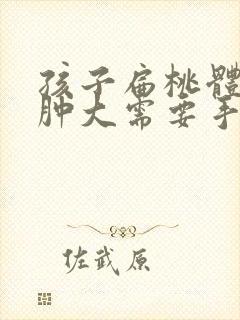 孩子扁桃體
肿大需要手
佐武原